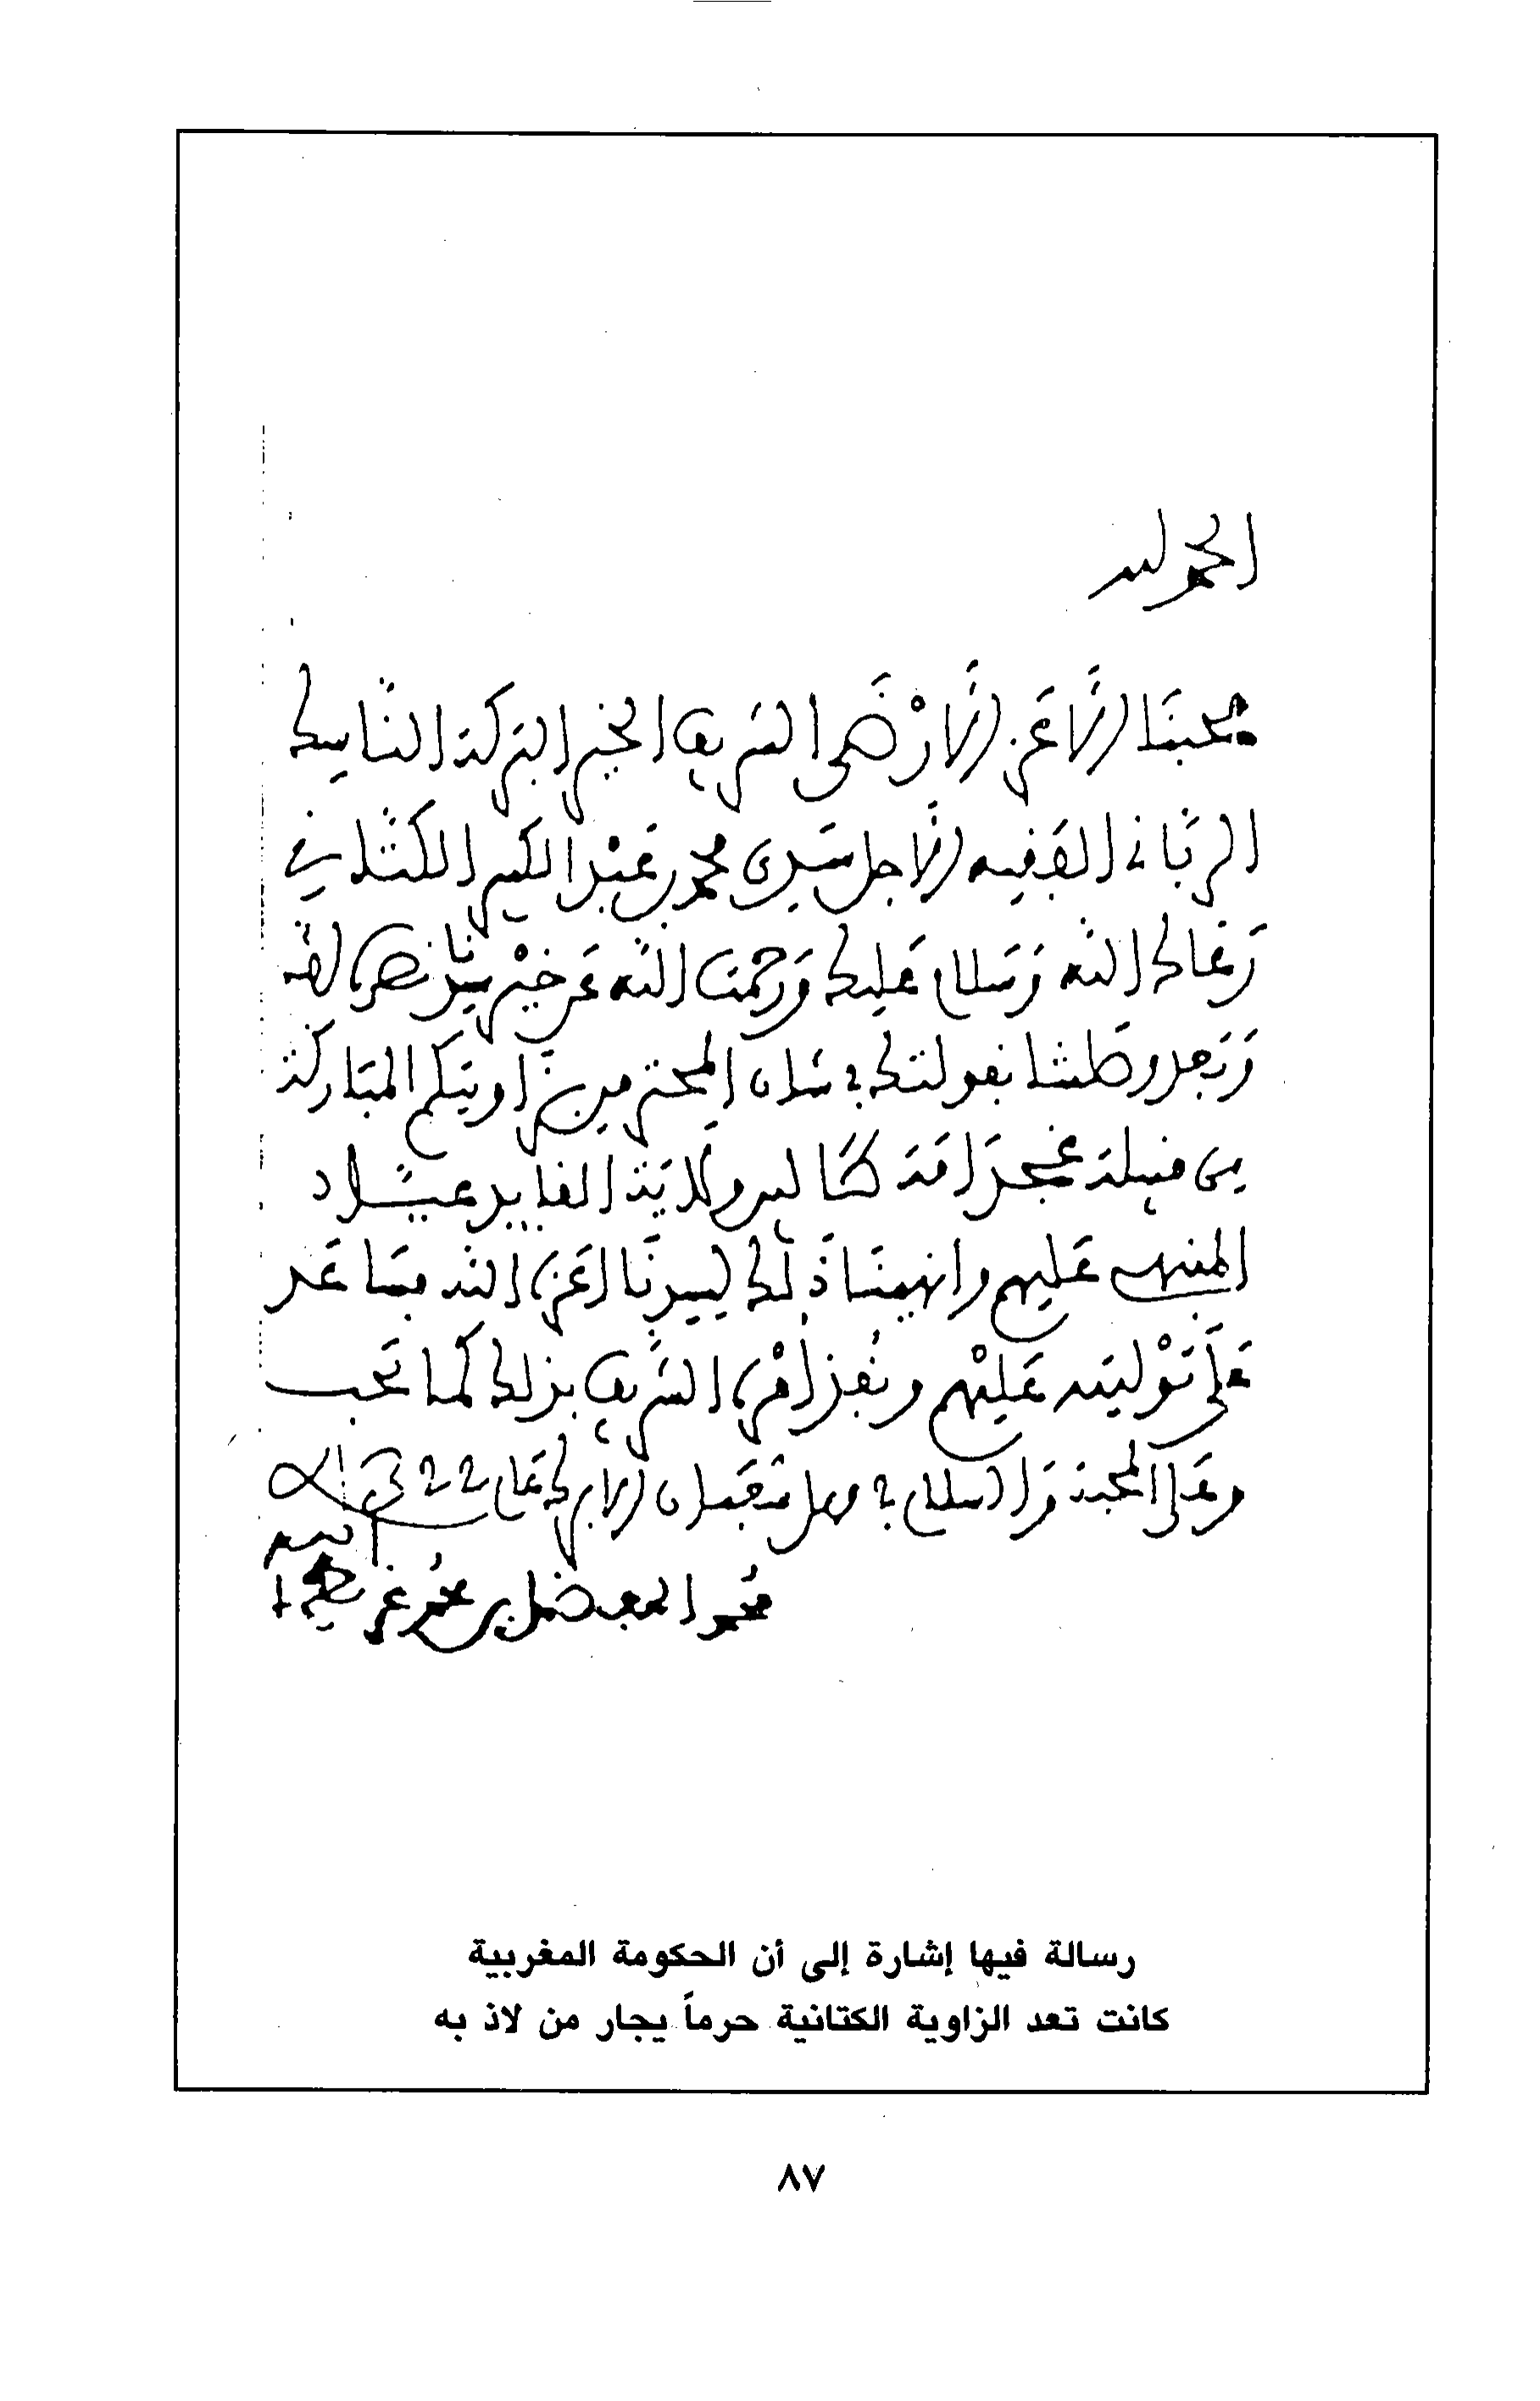 الحمد لله
محبنا الأعز الأرضى الشريف الخير البركة الناسك
الرباني الفقيه الأجل سيدي محمد بن عبد الكبير الكتاني
رعاك الله وسلام عليك ورحمت الله عن خير سيدنا نصره الله
وبعد وصلنا بقولتك في شأن المحترمين بزاويتكم المباركة
من قبيلة كنا لسد ولاية القايد عياد
المنبهي عليهم وانهينا ذلك لسيدنا أعزه الله فساعد
على توليته عليهم ونفذ أمره الشريف بذلك كما تحب
وعلى المحبة والسلام في شعبان الأبرك عام
محمد المفضل بن محمد غريط
رسالة فيها إشارة إلى أن الحكومة المغربية
كانت تعد الزاوية الكتانية حرماً يجار من لاذ به
٨٧